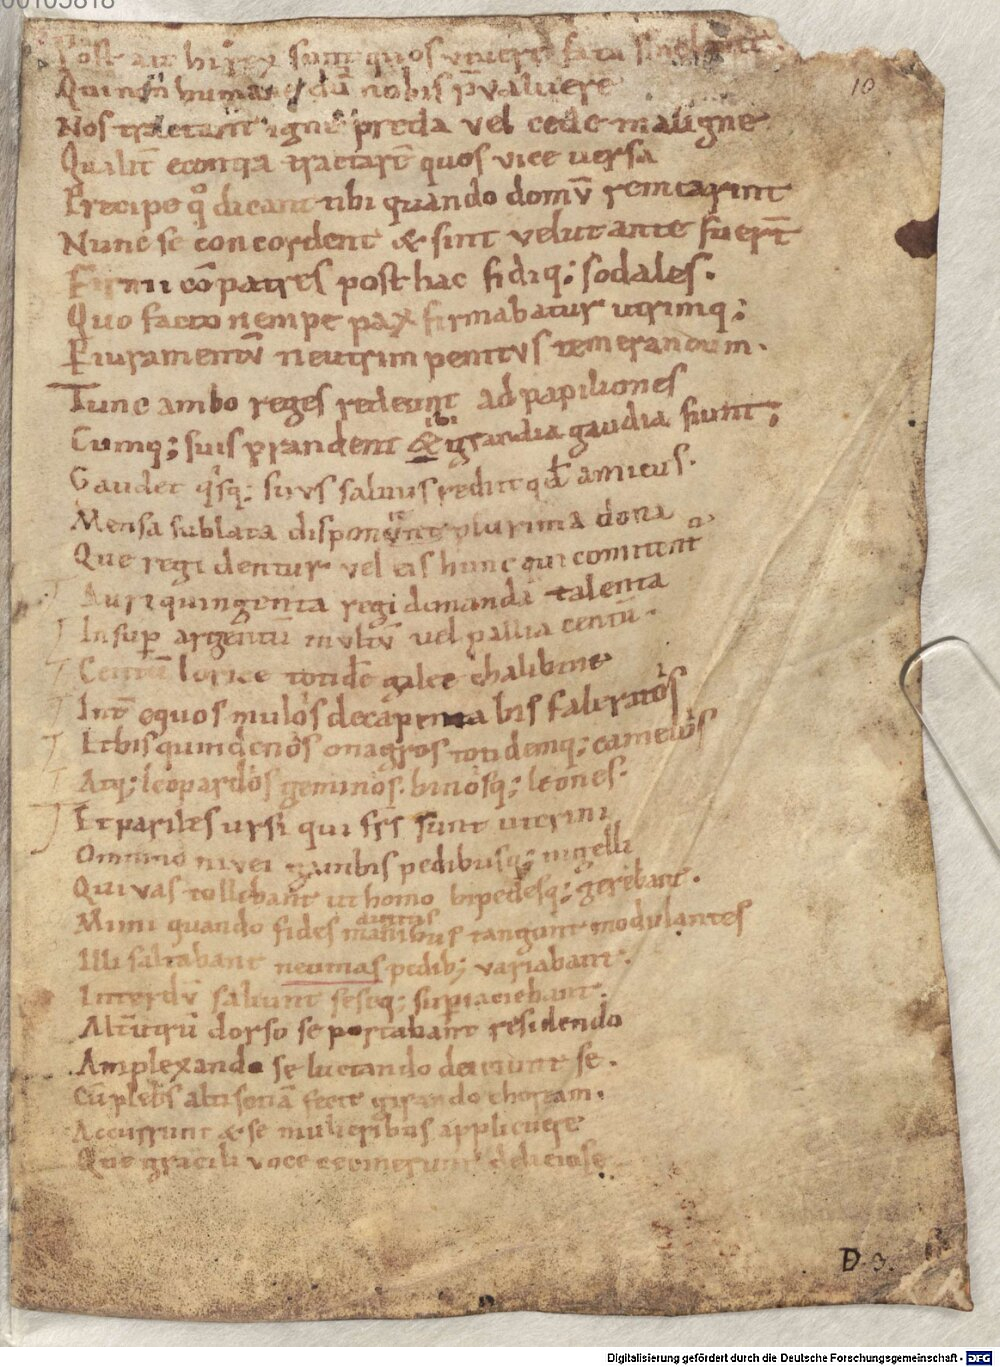 00105818
10
Post aut hi rex sunt quos viuere fata sinebant
Qui non humane dū nobis p̄valuere
Nos tractant igne preda vel cede maligne
Qualit̄ econtra tractart̄ quos vice uersa
Precipe qͦ dicant tibi quando domū remearint
Nunc se concordent & sint velut ante fuert̄
Firmi cōpatres post hac fidiq; sodales.
Quo facto nempe pax firmabatur utrimq;
Et iuramentū neutrim penitvs temerandum.
Tunc ambo reges redeunt ad papiliones
Cumq; suis prandent & ibi grandia gaudia fiunt;
Gaudet qͥsq; suvs saluus rediit qd̄ amicus.
Mensa sublata disponunt plurima dona
Que regi dentur vel eis hunc qui comitent̄
Auri quingenta regi donanda talenta
Insup̄ argentū multū vel pallia centū.
Centū lorice totidē galee chalibine
Int̄ equos mulos decapenta bis faleratos
Et bis quindenos onagros totidemq; camelos
Atq; leopardos geminos. binosq; leones.
Et pariles ursi qui frs̄ sunt uterini
Omnino nivei gambis pedibusq; nigelli
Qui vas tollebant ut homo bipedesq; gerebant.
Mimi quando fides digitas manibus tangunt modulantes
Illi saltabant neumas pedib; variabant.
Interdū saliunt seseq; sup̄iaciebant.
Alt̄utrū dorso se portabant residendo
Amplexando se luctando deiciunt se.
Cū plebs altisonā fecit girando choream.
Accurrunt & se mulieribus applicuere
Que gracili voce cecinerunt deliciose
D. 3.
Digitalisierung gefördert durch die Deutsche Forschungsgemeinschaft - DFG